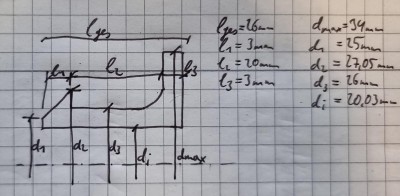 lges
l1 l2 l3
d1 d2 d3 di dmax
lges=26mm
l1=3mm
l2=20mm
l3=3mm
dmax=34mm
d1=25mm
d2=27,05mm
d3=26mm
di=20,03mm